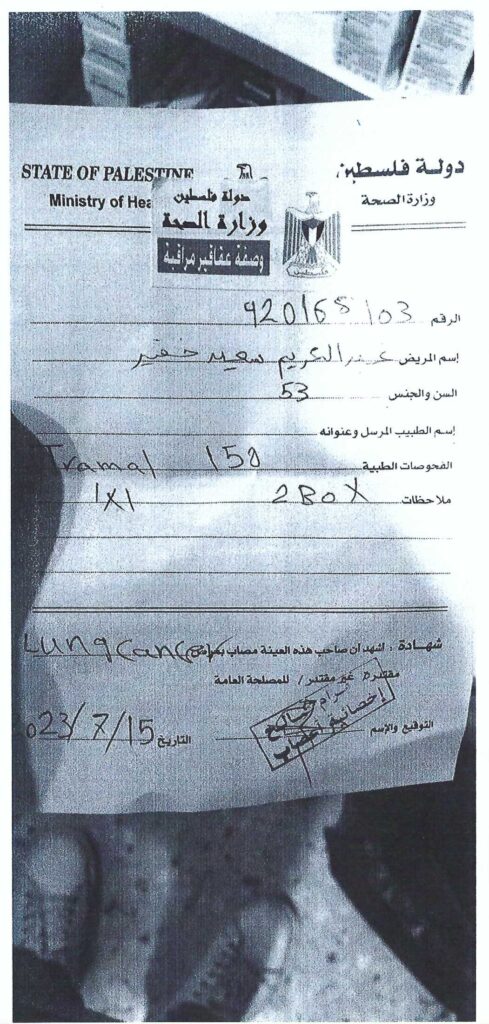 STATE OF PALESTINE
Ministry of Hea
دولة فلسطين
وزارة الصحة
دولة فلسطين
وزارة الصحة
وصفة عقاقير مراقبة
فلسطين
الرقم 920168103
إسم المريض عبد الكريم سعيد
السن والجنس 53
إسم الطبيب المرسل وعنوانه
الفحوصات الطبية Tramal 150
ملاحظات 2BOX 1X1
شهادة : اشهد أن صاحب هذه العينة مصاب Lung Cancer
مقتدر/ غير مقتدر/ للمصلحة العامة
إخصائي أعصاب
التوقيع والإسم
التاريخ 023/7/15